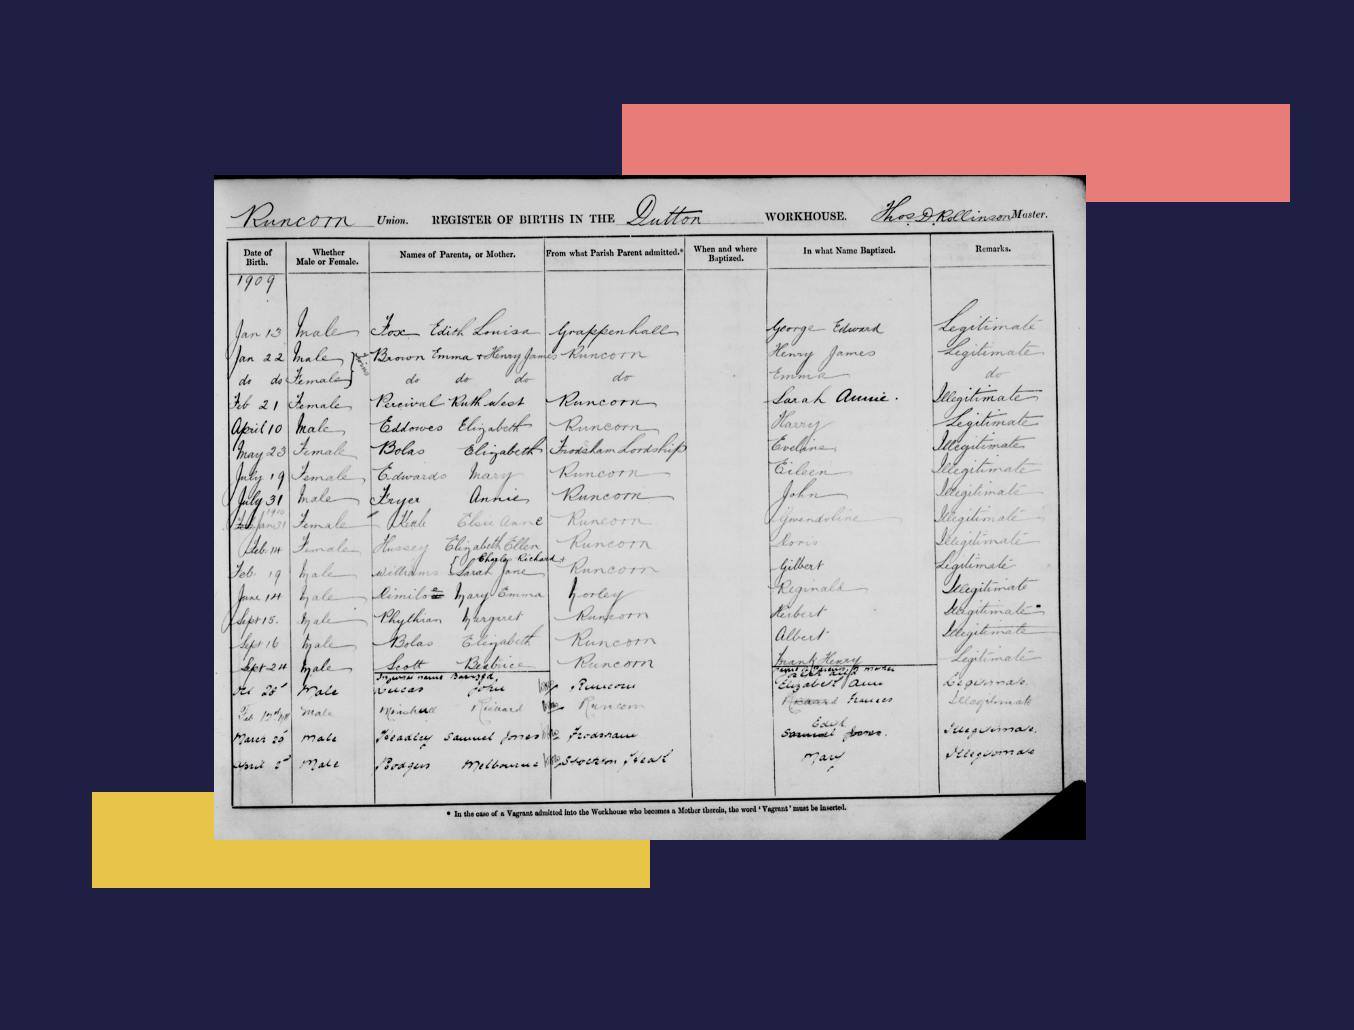 Runcorn Union. REGISTER OF BIRTHS IN THE Dutton WORKHOUSE. Thos. D. Rollinson Master.
Date of Birth. Whether Male or Female. Names of Parents, or Mother. From what Parish Parent admitted.* When and where Baptized. In what Name Baptized. Remarks.
1909
Jan 13 Male Fox Edith Louisa Grappenhall George Edward Legitimate
Jan 22 Male Twins Brown Emma + Henry James Runcorn Henry James Legitimate
do do Female do do do do Emma do
Feb 21 Female Percival Ruth West Runcorn Sarah Annie. Illegitimate
April 10 Male Eddowes Elizabeth Runcorn Harry Legitimate
May 23 Female Bolas Elizabeth Frodsham Lordship Eveline Illegitimate
July 19 Female Edwards Mary Runcorn Eileen Illegitimate
July 31 Male Fryer Annie Runcorn John Illegitimate
1910
Jan 31 Female Elsie Anne Runcorn Gwendoline Illegitimate
Feb 14 Female Hussey Elizabeth Ellen Runcorn Doris Illegitimate
Feb 19 Male Williams { Charles Richard + Sarah Jane Runcorn Gilbert Legitimate
June 14 Male Mary Emma Norley Reginald Illegitimate
Sept 15. Male Phythian Margaret Runcorn Herbert Illegitimate
Sept 16 Male Bolas Elizabeth Runcorn Albert Illegitimate
Sept 24 Male Scott Beatrice Runcorn Frank Henry Legitimate
In what name Baptized, Name of Parents, or mother
Male Lucas John Runcorn Elizabeth Ann Legitimate
Feb Male Minshull Richard Runcorn Richard Frances Illegitimate
March 25 Male Headley Samuel Jones Frodsham Edith Samuel Jones. Illegitimate.
April 2nd Male Rodgers Melbourne Stockton Heath Mary Illegitimate
* In the case of a Vagrant admitted into the Workhouse who becomes a Mother therein, the word 'Vagrant' must be inserted.